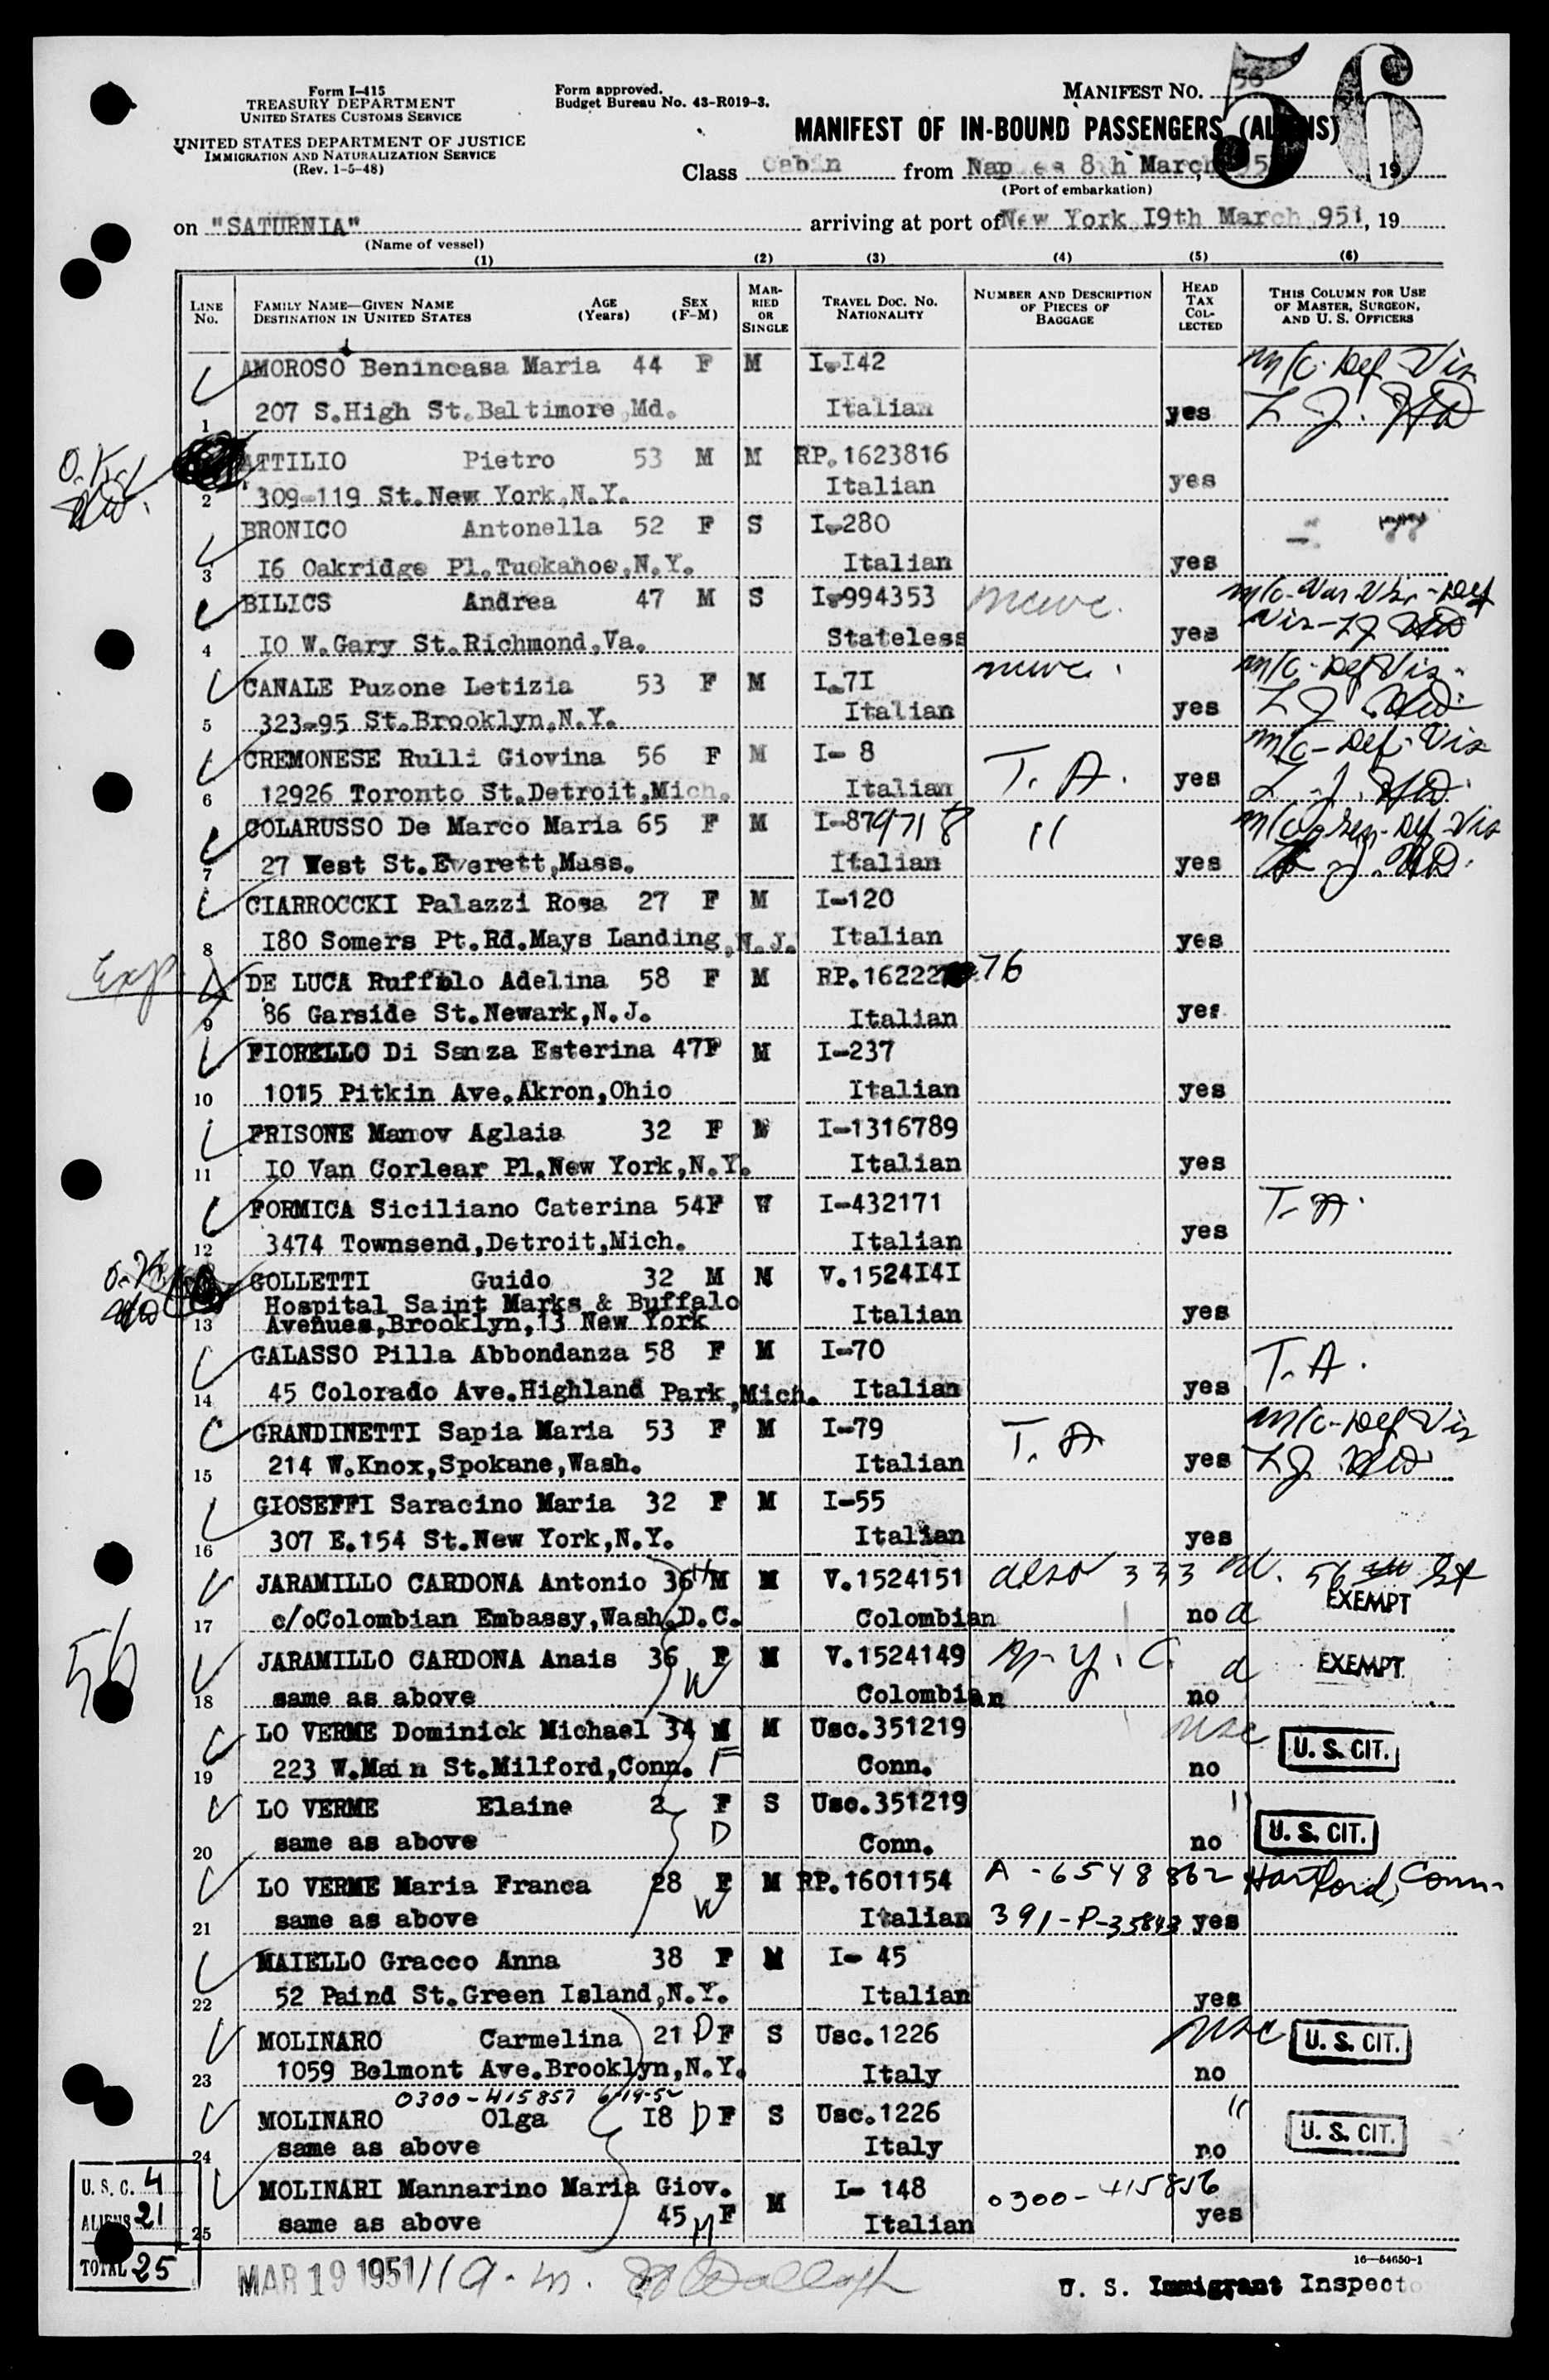 Form I-415
TREASURY DEPARTMENT
UNITED STATES CUSTOMS SERVICE
UNITED STATES DEPARTMENT OF JUSTICE
IMMIGRATION AND NATURALIZATION SERVICE
(Rev. 1-5-48)
Form approved.
Budget Bureau No. 43-R019-3.
MANIFEST NO. 56
56
MANIFEST OF IN-BOUND PASSENGERS (ALIENS)
Class Cabin from Naples 8th March, 195 , 19
(Port of embarkation)
on "SATURNIA" arriving at port of New York I9th March 951, 19
(Name of vessel)
(1) (2) (3) (4) (5) (6)
LINE No. FAMILY NAME—GIVEN NAME DESTINATION IN UNITED STATES AGE (Years) SEX (F-M) MARRIED OR SINGLE TRAVEL DOC. NO. NATIONALITY NUMBER AND DESCRIPTION OF PIECES OF BAGGAGE HEAD TAX COLLECTED THIS COLUMN FOR USE OF MASTER, SURGEON, AND U. S. OFFICERS
AMOROSO Benincasa Maria 44 F M I-I42 m/c-Def-Vis
1 207 S.High St.Baltimore,Md. Italian yes L J. HD
O.K. ATTILIO Pietro 53 M M RP.1623816
2 309-119 St.New York,N.Y. Italian yes
BRONICO Antonella 52 F S I-280
3 I6 Oakridge Pl.Tuckahoe,N.Y. Italian yes
BILICS Andrea 47 M S I-994353 m/c-Var Vs.-Def
4 IO W.Gary St.Richmond,Va. Stateless yes Vis-LJ HD
CANALE Puzone Letizia 53 F M I-7I m/c-Def Vis-
5 323-95 St.Brooklyn,N.Y. Italian yes LJ HD
CREMONESE Rulli Giovina 56 F M I- 8 T. A. m/c-Def-Vis
6 12926 Toronto St.Detroit,Mich. Italian yes L J. HD
COLARUSSO De Marco Maria 65 F M I-879718 " m/c Def Vis
7 27 West St.Everett,Mass. Italian yes L J. HD.
CIARROCCKI Palazzi Rosa 27 F M I-120
8 I80 Somers Pt.Rd.Mays Landing,N.J. Italian yes
Exp. DE LUCA Ruffolo Adelina 58 F M RP.16222 76
9 86 Garside St.Newark,N.J. Italian yes
FIORELLO Di Sanza Esterina 47F M I-237
10 1015 Pitkin Ave.Akron,Ohio Italian yes
FRISONE Manov Aglaia 32 F M I-1316789
11 IO Van Corlear Pl.New York,N.Y. Italian yes
FORMICA Siciliano Caterina 54F W I-432171 T. A.
12 3474 Townsend,Detroit,Mich. Italian yes
O.K. GOLLETTI Guido 32 M M V.1524I4I
Hospital Saint Marks & Buffalo Italian yes
13 Avenues,Brooklyn,13 New York
GALASSO Pilla Abbondanza 58 F M I-70 T. A.
14 45 Colorado Ave.Highland Park,Mich. Italian yes
GRANDINETTI Sapia Maria 53 F M I-79 T. A. m/c-Def Vis
15 214 W.Knox,Spokane,Wash. Italian yes LJ HD
GIOSEFFI Saracino Maria 32 F M I-55
16 307 E.154 St.New York,N.Y. Italian yes
JARAMILLO CARDONA Antonio 36 H M M V.1524151 also 333 W. 56th St
17 c/oColombian Embassy,Wash.D.C. Colombian no a EXEMPT
JARAMILLO CARDONA Anais 36 F M V.1524149 N. Y. C. a EXEMPT
56 18 same as above W Colombian no
LO VERME Dominick Michael 34 M M Usc.351219 usc U. S. CIT.
19 223 W.Main St.Milford,Conn. F Conn. no
LO VERME Elaine 2 F S Usc.351219 " U. S. CIT.
20 same as above D Conn. no
LO VERME Maria Franca 28 F M RP.1601154 A-6548862 Hartford, Conn.
21 same as above W Italian 391-P-35843 yes
MAIELLO Gracco Anna 38 F M I- 45
22 52 Paind St.Green Island,N.Y. Italian yes
MOLINARO Carmelina 21 D F S Usc.1226 usc U. S. CIT.
23 1059 Belmont Ave.Brooklyn,N.Y. Italy no
0300-415857 6-19-52
MOLINARO Olga I8 D F S Usc.1226 " U. S. CIT.
24 same as above Italy no
MOLINARI Mannarino Maria Giov. M I- 148 0300-415856
25 same as above 45 M F Italian yes
U. S. C. 4
ALIENS 21
TOTAL 25
MAR 19 1951 11 a.m.
16—54650-1
U. S. Immigrant Inspecto